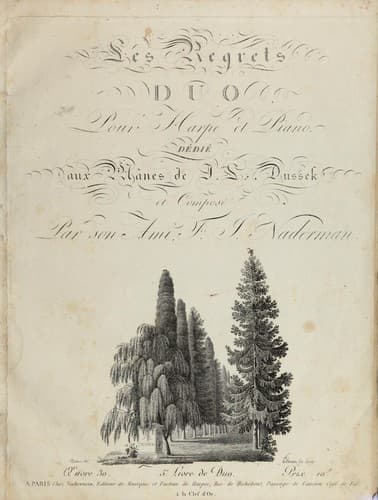 Les Regrets
DUO
Pour Harpe et Piano.
DÉDIÉ
aux Mânes de J. L. Dussek
et Composé
Par son Ami, F. J. Naderman
Œuvre 39. 5e Livre de Duo. Prix
A PARIS Chez Naderman, Editeur de Musique et Facteur de Harpes, Rue de Richelieu, Passage de l'ancien Café de Foi
à la Clef d'Or.